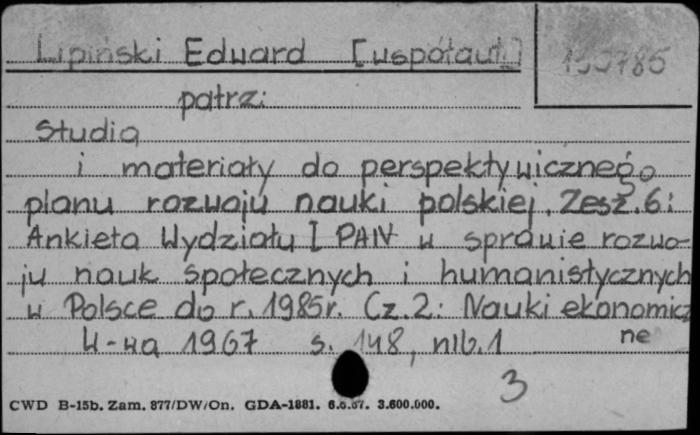 Lipiński Eduard [współaut.]
patrz:
Studia
i materiały do perspektywicznego
planu rozwoju nauki polskiej. Zesz. 6:
Ankieta Wydziału I PAN w sprawie rozwo-
ju nauk społecznych i humanistycznych
w Polsce do r. 1985r. Cz. 2: Nauki ekonomicz
ne
W-wa 1967 s. 148, nlb. 1
3
CWD B-15b. Zam. 877/DW/On. GDA-1881. 3.600.000.